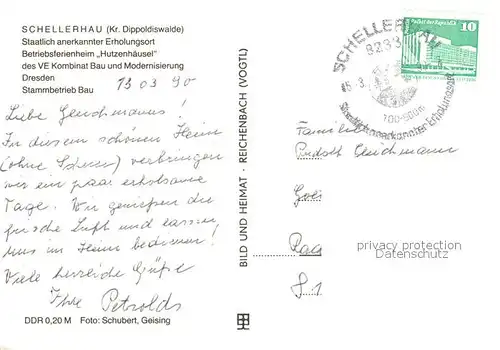 SCHELLERHAU (Kr. Dippoldiswalde)
Staatlich anerkannter Erholungsort
Betriebsferienheim „Hutzenhäusel"
des VE Kombinat Bau und Modernisierung
Dresden
Stammbetrieb Bau
13 03 90
Liebe
In diesem schönen Heim
(ohne ) verbringen
wir ein paar erholsame
Tage. Wir genießen die
frische Luft und lassen
uns im Heim bedienen!
Viele herzliche Grüße
Ihre Petzolds
DDR 0,20 M Foto: Schubert, Geising
BILD UND HEIMAT · REICHENBACH (VOGTL)
SCHELLERHAU
8233
Staatlich anerkannter Erholungsort
Palast der Republik
10
Familie
Rudolf
privacy protection
Datenschutz